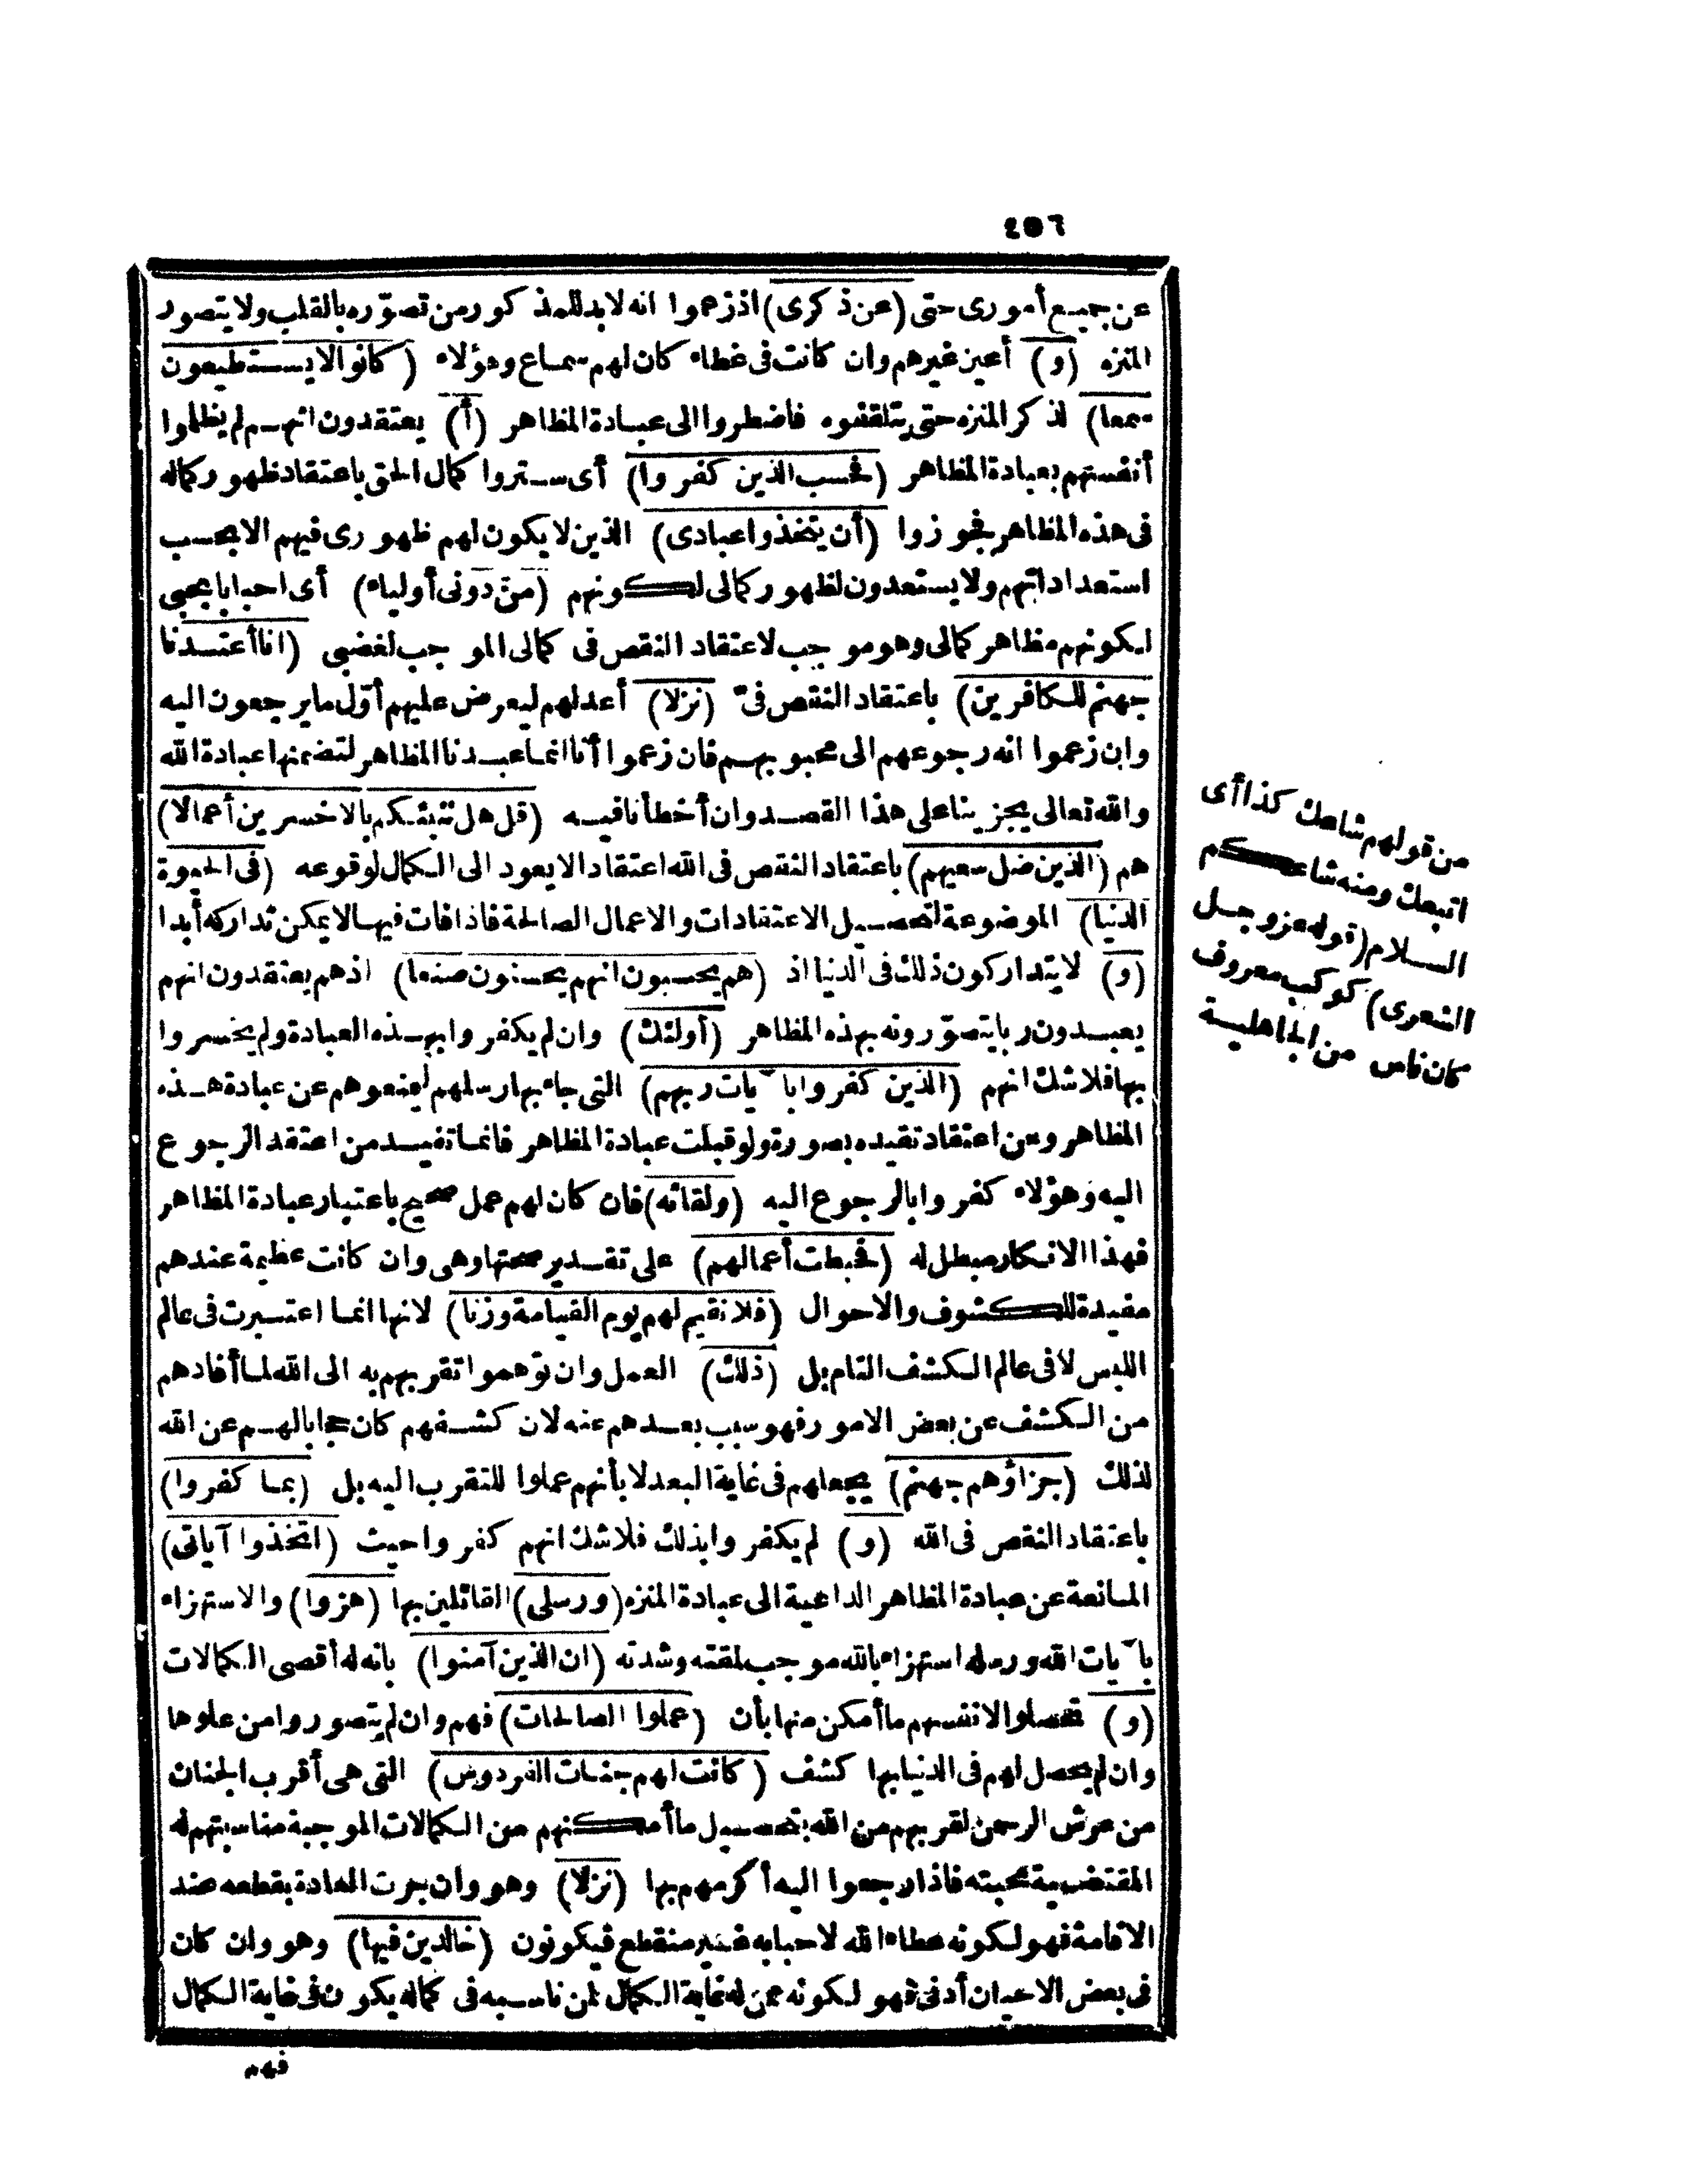 ٤٥٦
عن جميع أمورى حتى (عن ذكرى) اذ زعموا انه لا بد للمذكور من تصوّره بالقلب ولا يتصور
المنزه (و) أعين غيرهم وان كانت فى غطاء كان لهم سماع وهؤلاء (كانوا لا يستطيعون
سمعا) لذكر المنزه حتى يتلقفوه فاضطروا الى عبادة المظاهر (أ) يعتقدون انهم لم يظلموا
أنفسهم بعبادة المظاهر (فحسب الذين كفروا) أى ستروا كمال الحق باعتقاد ظهور كماله
فى هذه المظاهر فجوزوا (أن يتخذوا عبادى) الذين لا يكون لهم ظهورى فيهم الا بحسب
استعداداتهم ولا يستعدون لظهور كمالى لكونهم (من دونى أولياء) أى احبابا بحبى
لكونهم مظاهر كمالى وهو موجب لاعتقاد النقص فى كمالى الموجب لغضبى (انا أعتدنا
جهنم للكافرين) باعتقاد النقص فىّ (نزلا) أعد لهم ليعرض عليهم أوّل ما يرجعون اليه
وان زعموا انه رجوعهم الى محبوبهم فان زعموا أنا انما عبدنا المظاهر لتضمنها عبادة الله
والله تعالى يجزينا على هذا القصد وان أخطأنا فيه (قل هل ننبئكم بالاخسرين أعمالا)
هم (الذين ضل سعيهم) باعتقاد النقص فى الله اعتقادا لا يعود الى الكمال لوقوعه (فى الحيوة
الدنيا) الموضوعة لتحصيل الاعتقادات والاعمال الصالحة فاذا فات فيها لا يمكن تداركه أبدا
(و) لا يتداركون ذلك فى الدنيا اذ (هم يحسبون انهم يحسنون صنعا) اذ هم يعتقدون انهم
يعبدون ربا يتصوّرونه بهذه المظاهر (أولئك) وان لم يكفروا بهذه العبادة ولم يخسروا
بها فلا شك انهم (الذين كفروا بآيات ربهم) التى جاء بها رسلهم ليمنعوهم عن عبادة هذه
المظاهر وعن اعتقاد تقيده بصورة ولو قبلت عبادة المظاهر فانما تفيد من اعتقد الرجوع
اليه وهؤلاء كفروا بالرجوع اليه (ولقائه) فان كان لهم عمل صحيح باعتبار عبادة المظاهر
فهذا الانكار مبطل له (فحبطت أعمالهم) على تقدير صحتها وهى وان كانت عظيمة عندهم
مفيدة للكشوف والاحوال (فلا نقيم لهم يوم القيامة وزنا) لانها انما اعتبرت فى عالم
اللبس لا فى عالم الكشف التام بل (ذلك) العمل وان توّهموا تقربهم به الى الله لما أفادهم
من الكشف عن بعض الامور فهو سبب بعدهم عنه لان كشفهم كان حجابا لهم عن الله
لذلك (جزاؤهم جهنم) يجعلهم فى غاية البعد لا بأنهم عملوا للتقرب اليه بل (بما كفروا)
باعتقاد النقص فى الله (و) لم يكفروا بذلك فلا شك انهم كفروا حيث (اتخذوا آياتى)
المانعة عن عبادة المظاهر الداعية الى عبادة المنزه (ورسلى) القائلين بها (هزوا) والاستهزاء
بآيات الله ورسله استهزاء بالله موجب لمقته وشدته (ان الذين آمنوا) بانه له أقصى الكمالات
(و) حصلوا لانفسهم ما أمكن منها بأن (عملوا الصالحات) فهم وان لم يتصوروا من علوها
وان لم يحصل لهم فى الدنيا بها كشف (كانت لهم جنات الفردوس) التى هى أقرب الجنان
من عرش الرحمن لقربهم من الله بتحصيل ما أمكنهم من الكمالات الموجبة مناسبتهم له
المقتضية محبته فاذا رجعوا اليه أكرمهم بها (نزلا) وهو وان جرت العادة بقطعه عند
الاقامة فهو لكونه عطاء الله لاحبابه غير منقطع فيكونون (خالدين فيها) وهو وان كان
فى بعض الاعيان أدنى فهو لكونه ممن له غاية الكمال لمن ناسبه فى كماله يكون فى غاية الكمال
فهم
من قولهم شاعك كذا أى
اتبعك ومنه شاعكم
السلام (قوله عز وجل
الشعرى) كوكب معروف
كان ناس من الجاهلية